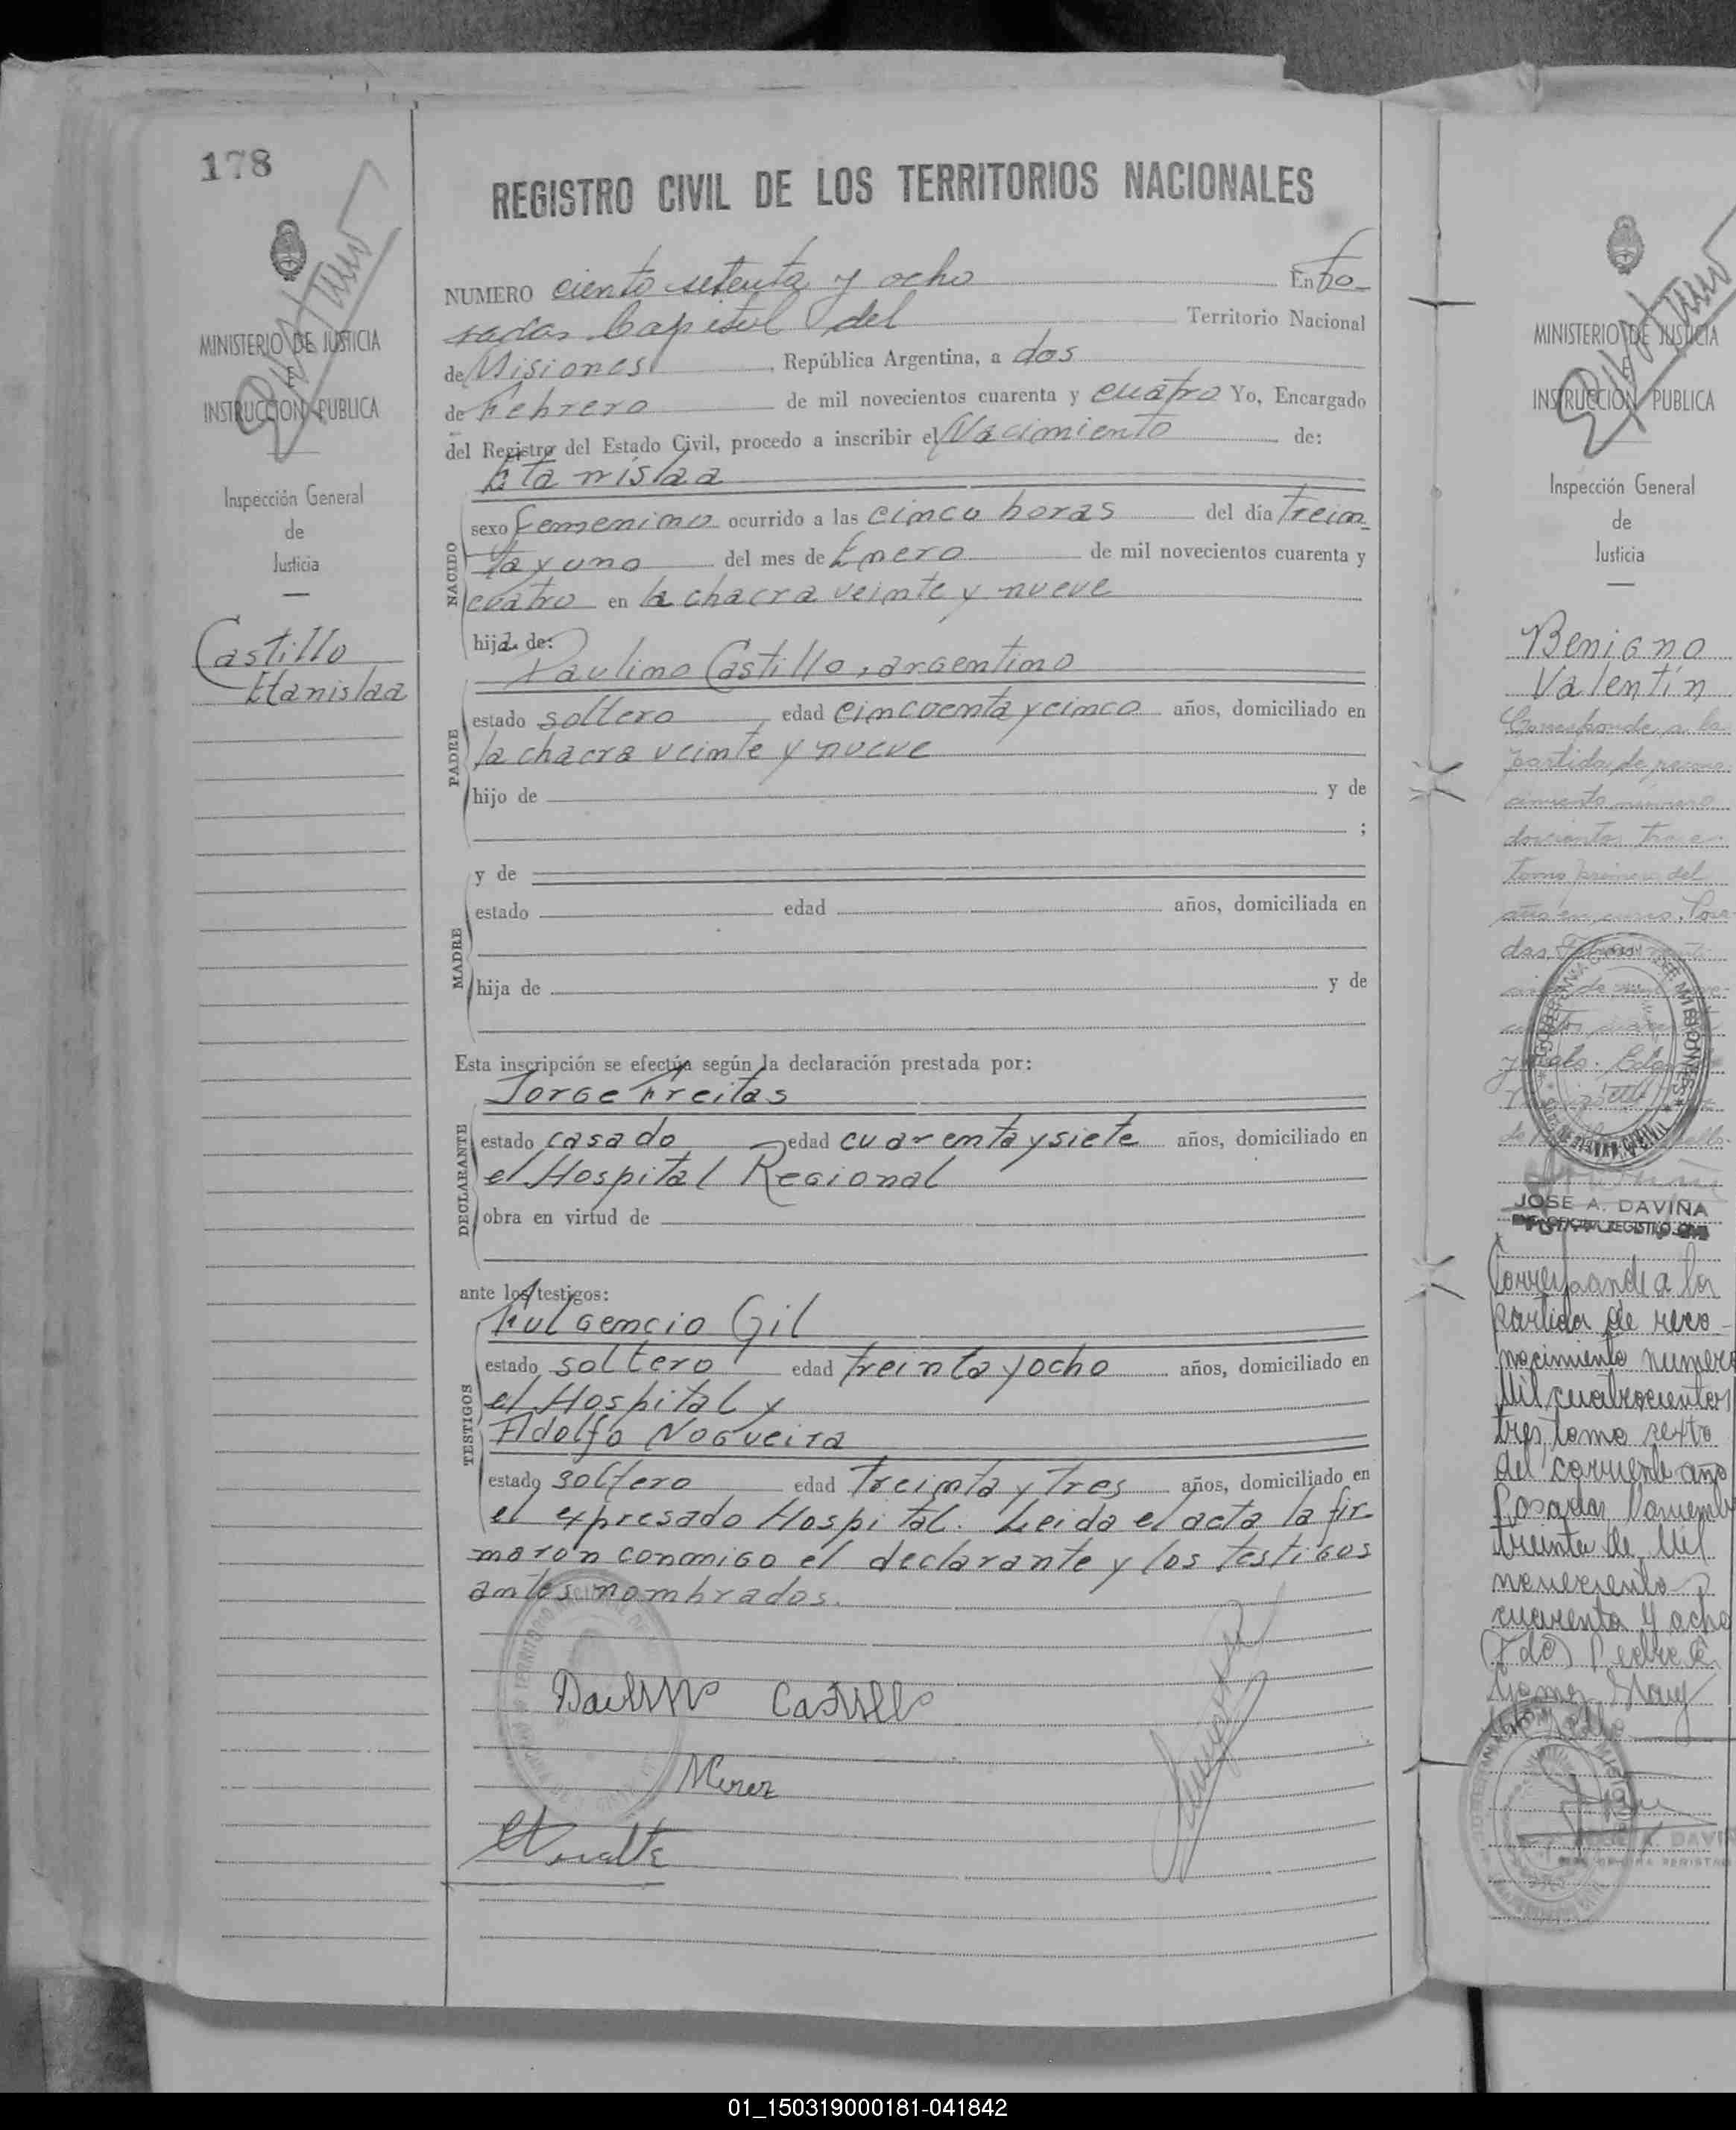 178
REGISTRO CIVIL DE LOS TERRITORIOS NACIONALES
MINISTERIO DE JUSTICIA
E
INSTRUCCION PUBLICA
Inspección General
de
Justicia
Castillo
Etanislaa
NUMERO ciento setenta y ocho En Po-
sadas Capital del Territorio Nacional
de Misiones, República Argentina, a dos
de Febrero de mil novecientos cuarenta y cuatro Yo, Encargado
del Registro del Estado Civil, procedo a inscribir el Nacimiento de:
Etanislaa
NACIDO
sexo femenino ocurrido a las cinco horas del día trein-
ta y uno del mes de Enero de mil novecientos cuarenta y
cuatro en la chacra veinte y nueve
hija de:
Paulino Castillo, argentino
PADRE
estado soltero edad cincuenta y cinco años, domiciliado en
la chacra veinte y nueve
hijo de y de
;
y de
MADRE
estado edad años, domiciliada en
hija de y de
Esta inscripción se efectúa según la declaración prestada por:
Jorge Freitas
DECLARANTE
estado casado edad cuarenta y siete años, domiciliado en
el Hospital Regional
obra en virtud de
ante los testigos:
Fulgencio Gil
TESTIGOS
estado soltero edad treinta y ocho años, domiciliado en
el Hospital y
Adolfo Nogueira
estado soltero edad treinta y tres años, domiciliado en
el expresado Hospital. Leida el acta la fir-
maron conmigo el declarante y los testigos
antes nombrados.
Paulino Castillo
MINISTERIO DE JUSTICIA
E
INSTRUCCION PUBLICA
Inspección General
de
Justicia
Benigno
Valentín
Corresponde a la
partida de recono
cimiento número
doscientos trece
tomo primero del
año en curso. Posa
das
JOSE A. DAVIÑA
Corresponde a la
partida de reco-
nocimiento numero
Mil cuatrocientos
tres, tomo sexto
del corriente año
Posadas Noviemb
treinta de Mil
novecientos
cuarenta y ocho
(Fdo) Pedro
Gomez
01_150319000181-041842